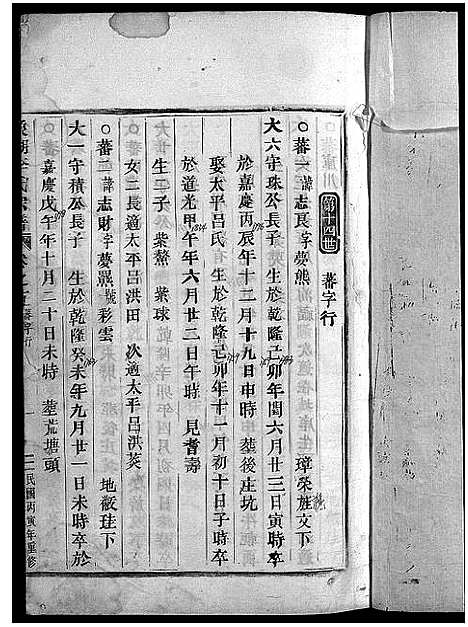 第十四世　蕃字行
○蕃一諱志良字夢熊　璋榮旌文下
大六守珠公長子　生於乾隆己卯年閏六月廿三日寅時卒
於嘉慶丙辰年十二月十九日申時　塟後庄坑
娶太平呂氏　生於乾隆己卯年十一月初十日子時卒
於道光甲午年六月廿二日午時　見耆壽
生二子　紫鰲　紫球
女二長適太平呂洪田　次適太平呂洪芵
○蕃二諱志財字夢羆號彩雲　地蔽珪下
大一守積公長子　生於乾隆癸未年九月廿一日未時卒於
嘉慶戊午年十月二十日未時　塟荒塘頭
民國丙寅年重修